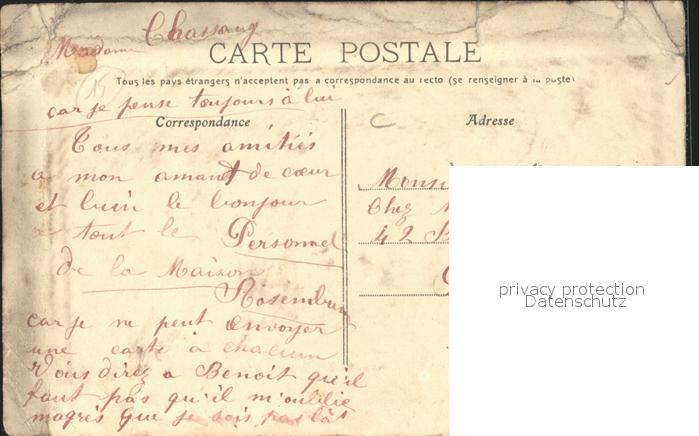 Madame Chassang
CARTE POSTALE
Tous les pays étrangers n'acceptent pas a correspondance au recto (se renseigner à la poste)
15
car je pense toujours à lui
Correspondance
Adresse
Tous mes amitiés
a mon amant de cœur
et bien le bonjour
a tout le Personnel
de la Maison
car je ne peut envoyer
une carte à chacun
Vous direz a Benoit qu'il
faut pas qu'il m'oublie
magrés que je sois pas là
C
Chez
42
privacy protection
Datenschutz